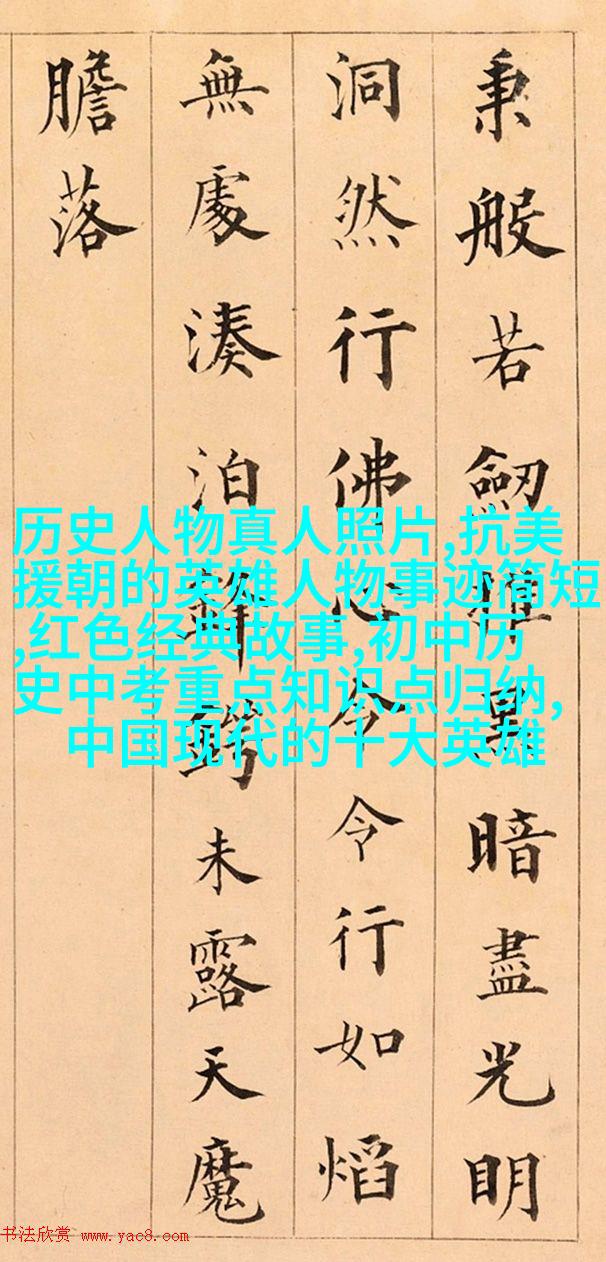 秉般若劒揮黑暗盡光明
洞然行佛心令令行如熖
無處湊泊鋒鍔未露天魔
膽落
历史人物真人照片,抗美
援朝的英雄人物事迹简短
,红色经典故事,初中历
史中考重点知识点归纳,
中国现代的十大英雄
书法欣赏 www.yac8.com